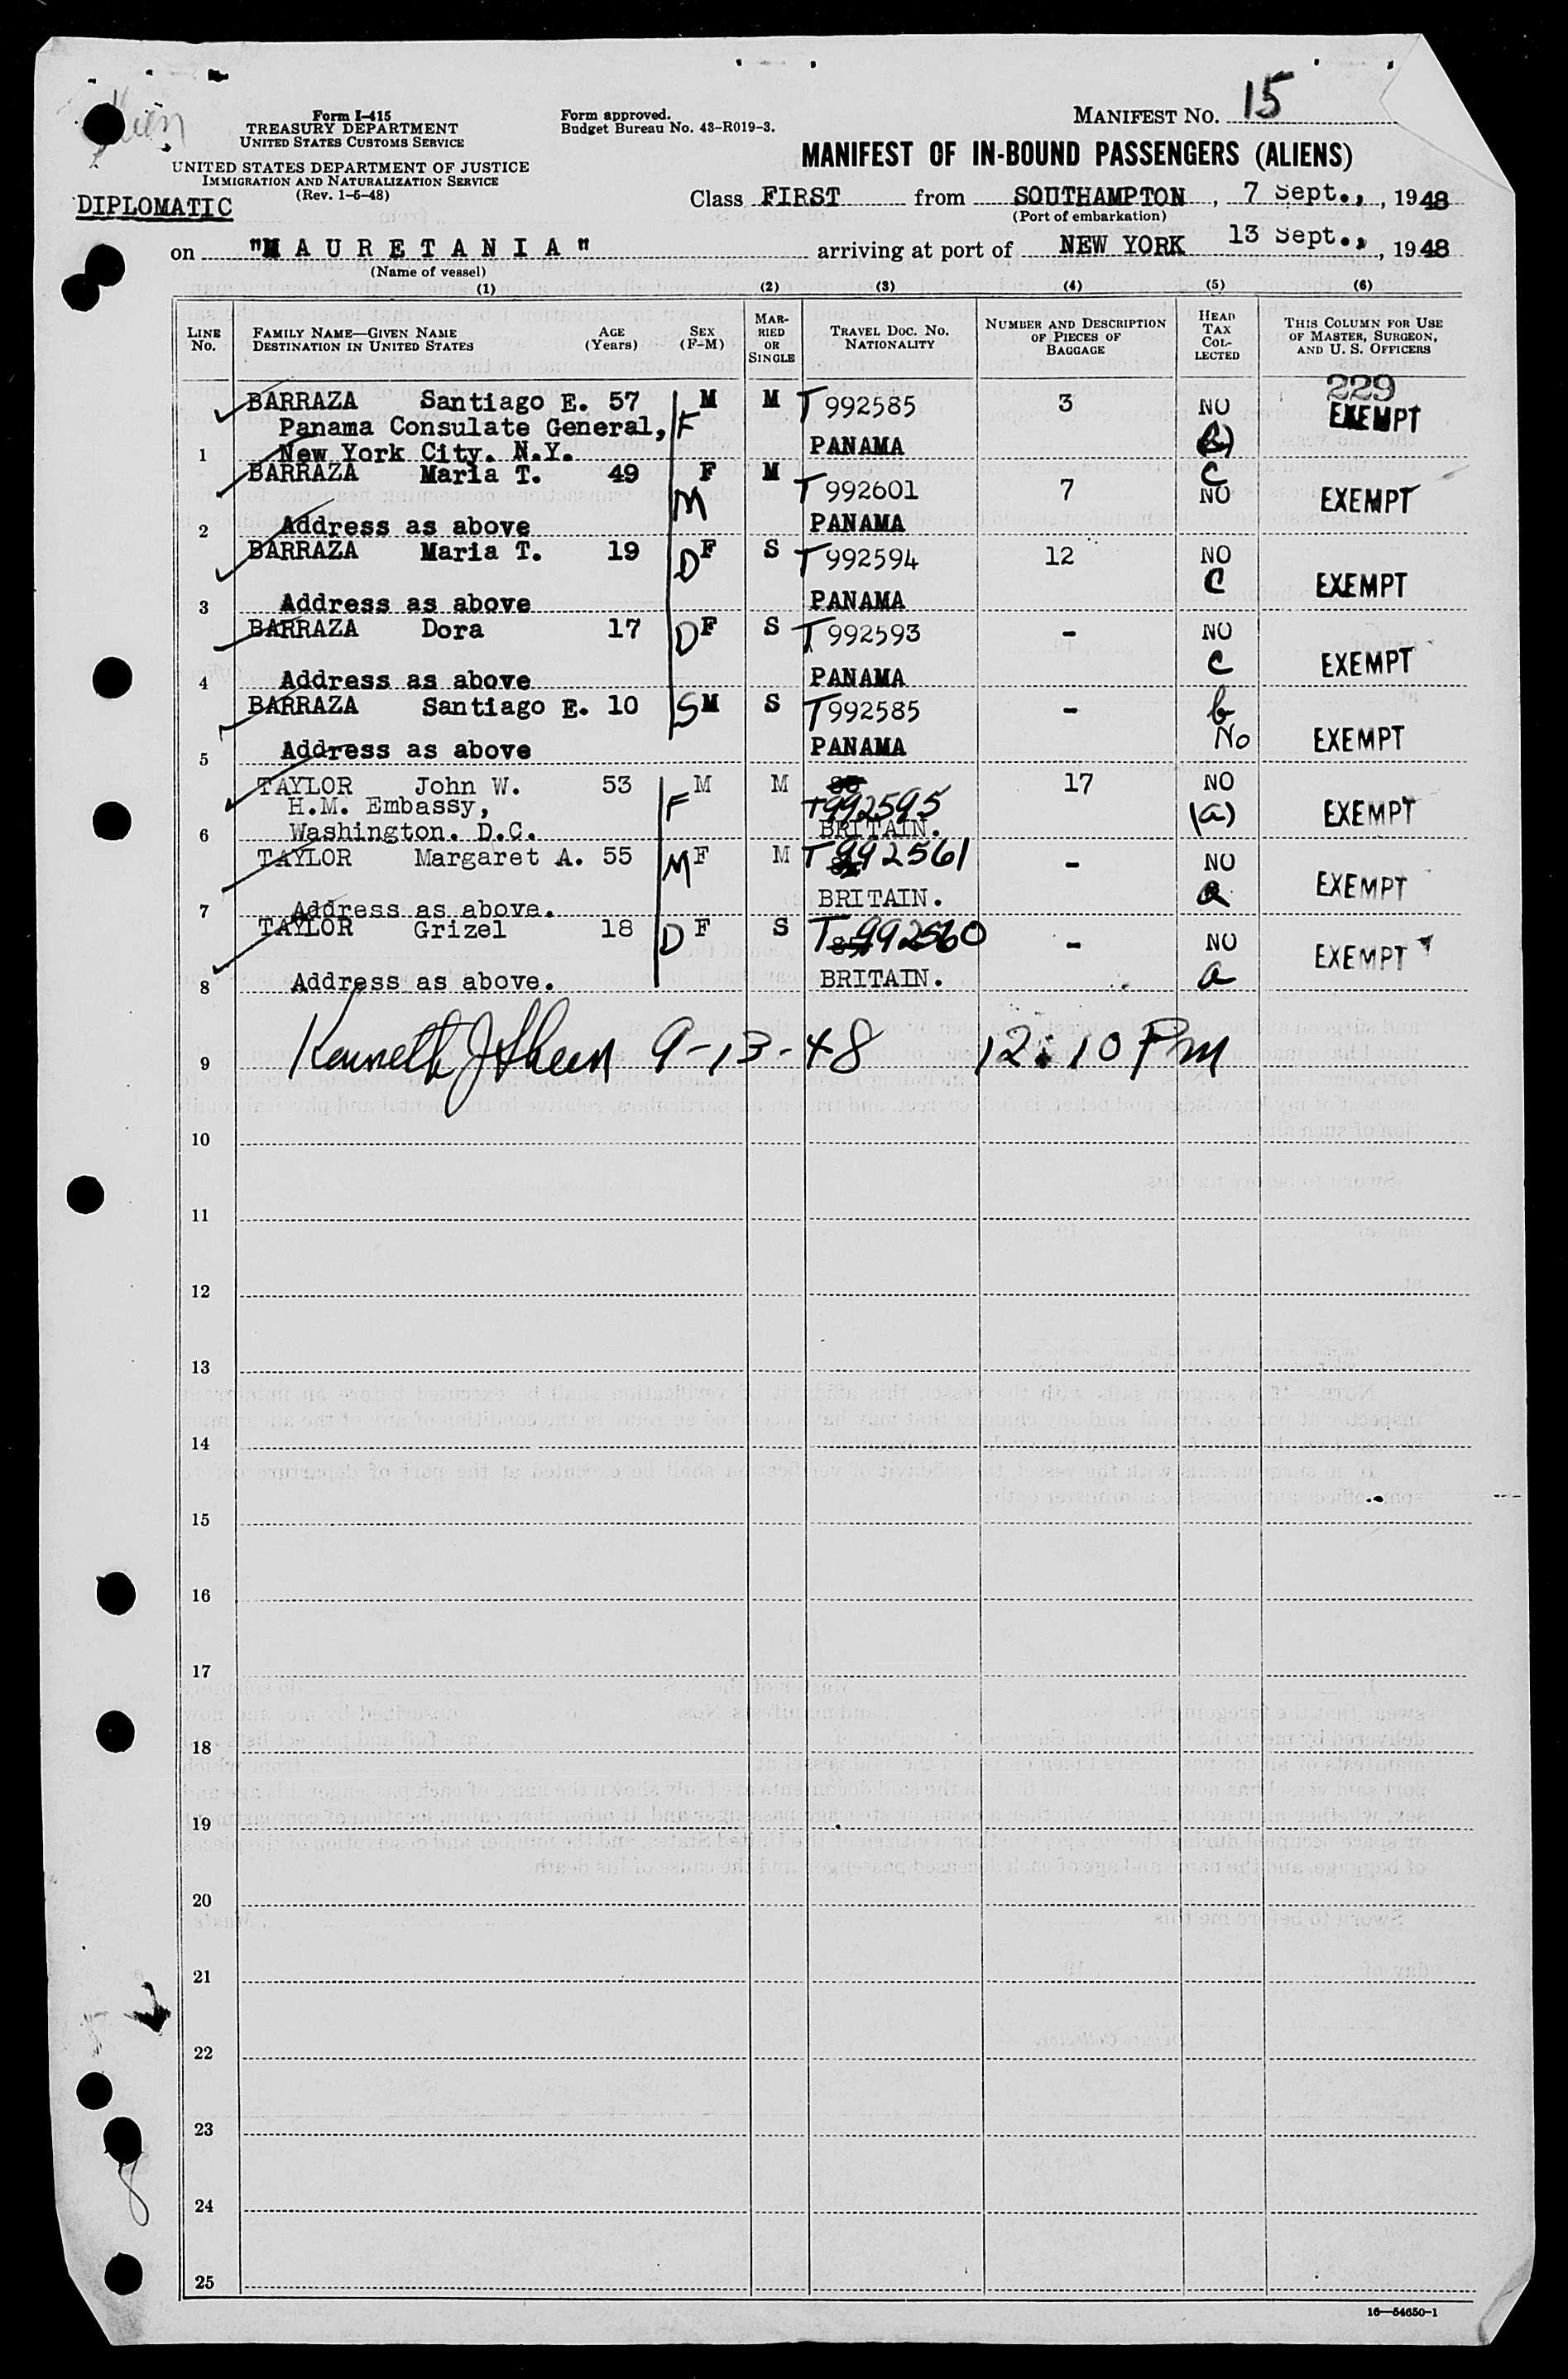 Form I-415
TREASURY DEPARTMENT
UNITED STATES CUSTOMS SERVICE
UNITED STATES DEPARTMENT OF JUSTICE
IMMIGRATION AND NATURALIZATION SERVICE
(Rev. 1-5-48)
Form approved.
Budget Bureau No. 43-R019-3.
MANIFEST NO. 15
MANIFEST OF IN-BOUND PASSENGERS (ALIENS)
DIPLOMATIC
Class FIRST from SOUTHAMPTON, 7 Sept., 1948
(Port of embarkation)
on "MAURETANIA" arriving at port of NEW YORK 13 Sept., 1948
(Name of vessel)
(1) (2) (3) (4) (5) (6)
LINE No. FAMILY NAME—GIVEN NAME DESTINATION IN UNITED STATES AGE (Years) SEX (F-M) MARRIED OR SINGLE TRAVEL DOC. NO. NATIONALITY NUMBER AND DESCRIPTION OF PIECES OF BAGGAGE HEAD TAX COLLECTED THIS COLUMN FOR USE OF MASTER, SURGEON, AND U. S. OFFICERS
229
BARRAZA Santiago E. 57 M M T 992585 3 NO EXEMPT
Panama Consulate General, F
1 New York City. N.Y. PANAMA
BARRAZA Maria T. 49 F M T 992601 7 C NO EXEMPT
M
2 Address as above PANAMA
BARRAZA Maria T. 19 D F S T 992594 12 NO C EXEMPT
3 Address as above PANAMA
BARRAZA Dora 17 D F S T 992593 - NO C EXEMPT
4 Address as above PANAMA
BARRAZA Santiago E. 10 S M S T 992585 - b No EXEMPT
5 Address as above PANAMA
TAYLOR John W. 53 M M 17 NO
H.M. Embassy, F T992595 (a) EXEMPT
6 Washington. D.C. BRITAIN.
TAYLOR Margaret A. 55 M F M T 992561 - NO a EXEMPT
7 Address as above. BRITAIN.
TAYLOR Grizel 18 D F S T 992560 - NO a EXEMPT
8 Address as above. BRITAIN.
9 Kenneth J Sheen 9-13-48 12:10 Pm
10
11
12
13
14
15
16
17
18
19
20
21
22
23
24
25
8
16—54650-1